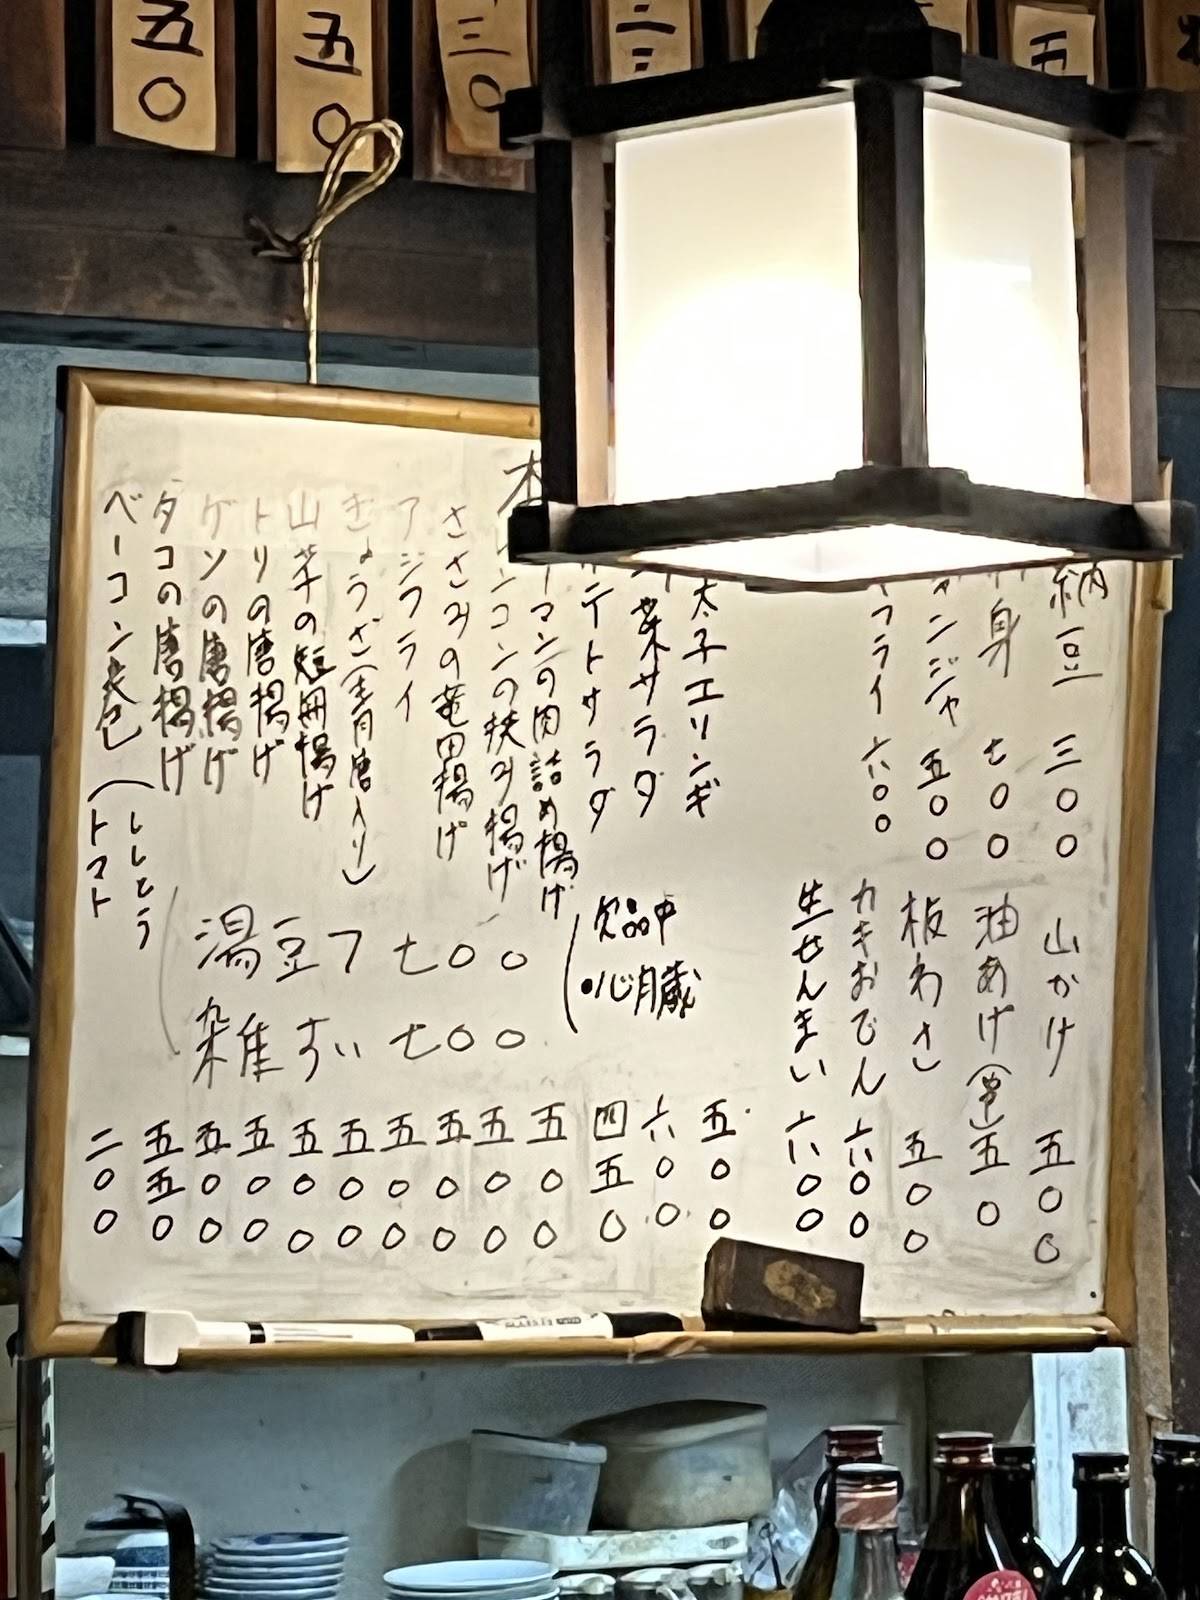 五〇
五〇
三〇
五
納豆 三〇〇
身 七〇〇
ャンジャ 五〇〇
フライ 六〇〇
山かけ 五〇〇
油あげ 五〇
板わさ 五〇〇
カキおでん 六〇〇
生せんまい 六〇〇
太子エリンギ 五〇〇
菜サラダ 六〇〇
テトサラダ 四五〇
ーマンの肉詰め揚げ 五〇〇
ンコンの挟み揚げ 五〇〇
ささみの竜田揚げ 五〇〇
アジフライ 五〇〇
ぎょうざ(青唐入り) 五〇〇
山芋の短冊揚げ 五〇〇
トリの唐揚げ 五〇〇
ゲソの唐揚げ 五〇〇
タコの唐揚げ 五五〇
ベーコン巻(ししとう
トマト 二〇〇
湯豆フ 七〇〇
雑すい 七〇〇
欠品中
・心臓